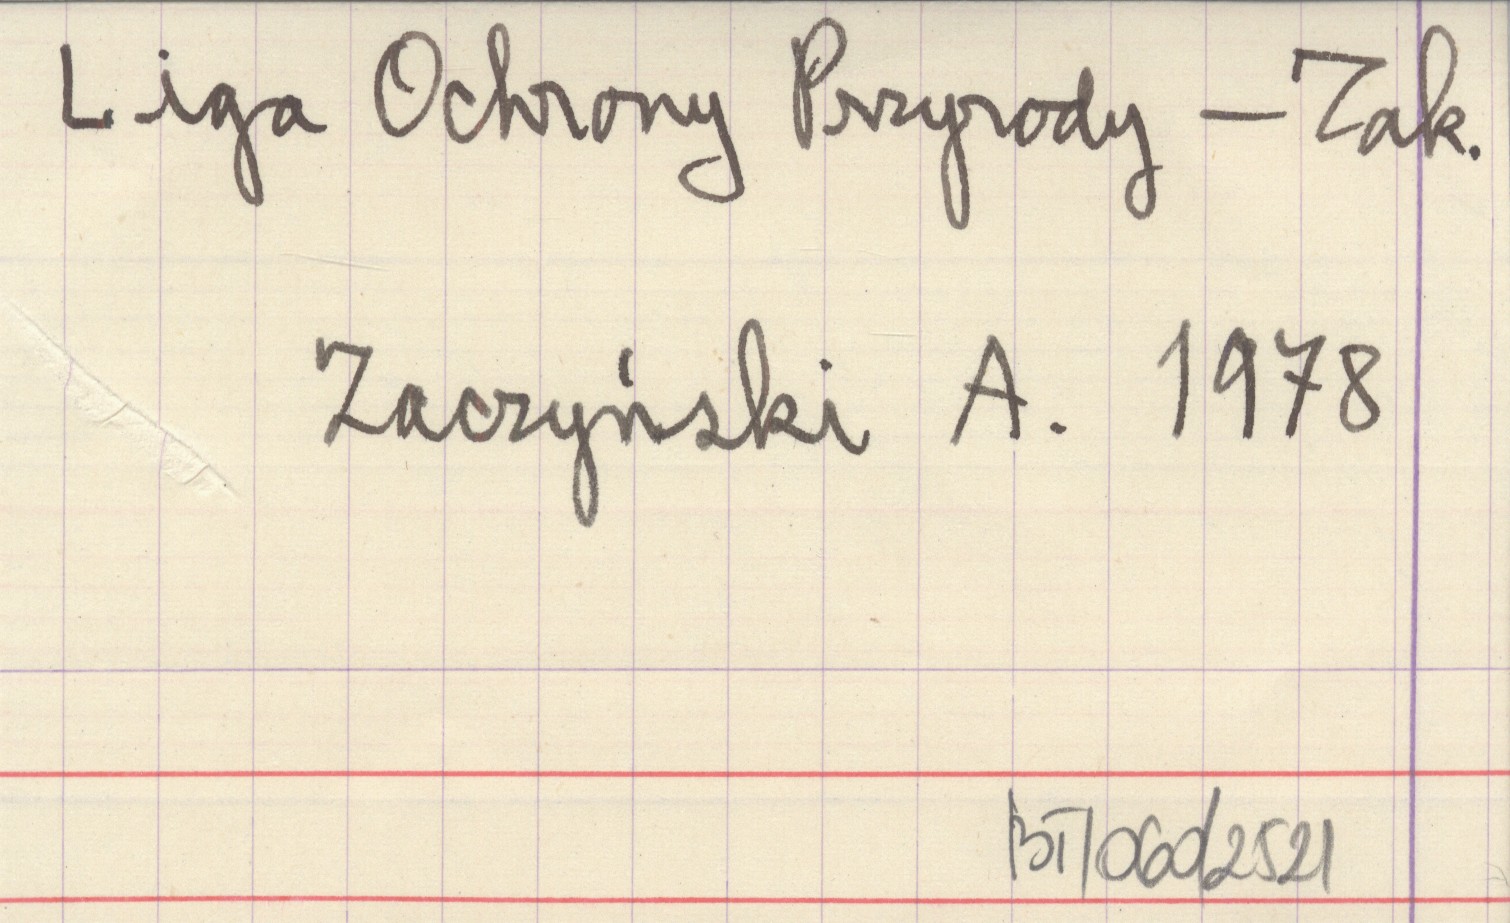 Liga Ochrony Przyrody – Zak.
Zaczyński A. 1978
BT/060/2521